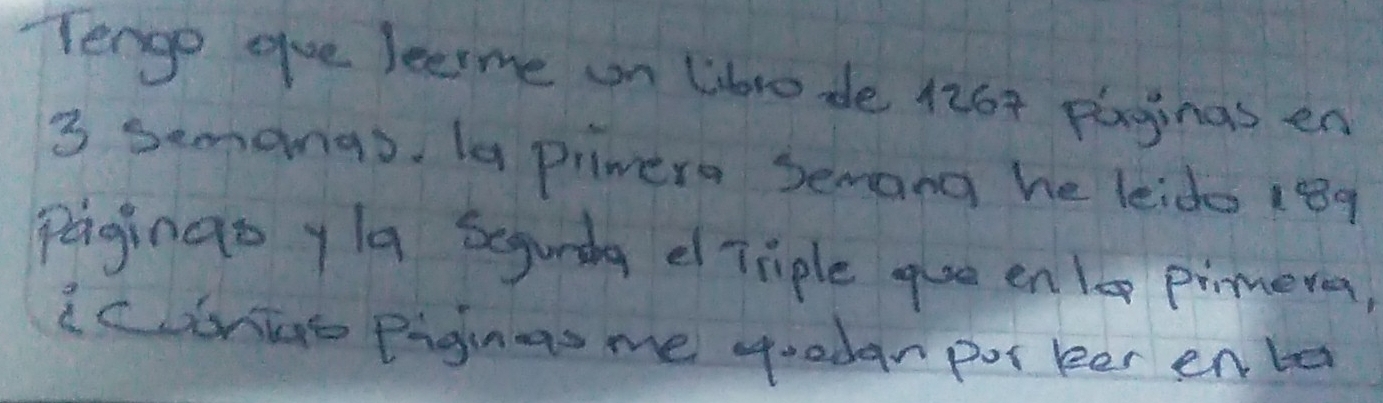 Tengo que leerme un libro de 1267 páginas en
3 semanas. la primera semana he leido 189
páginas y la segunda el Triple que en la primera,
¿Cuántas páginas me quedan por leer en la